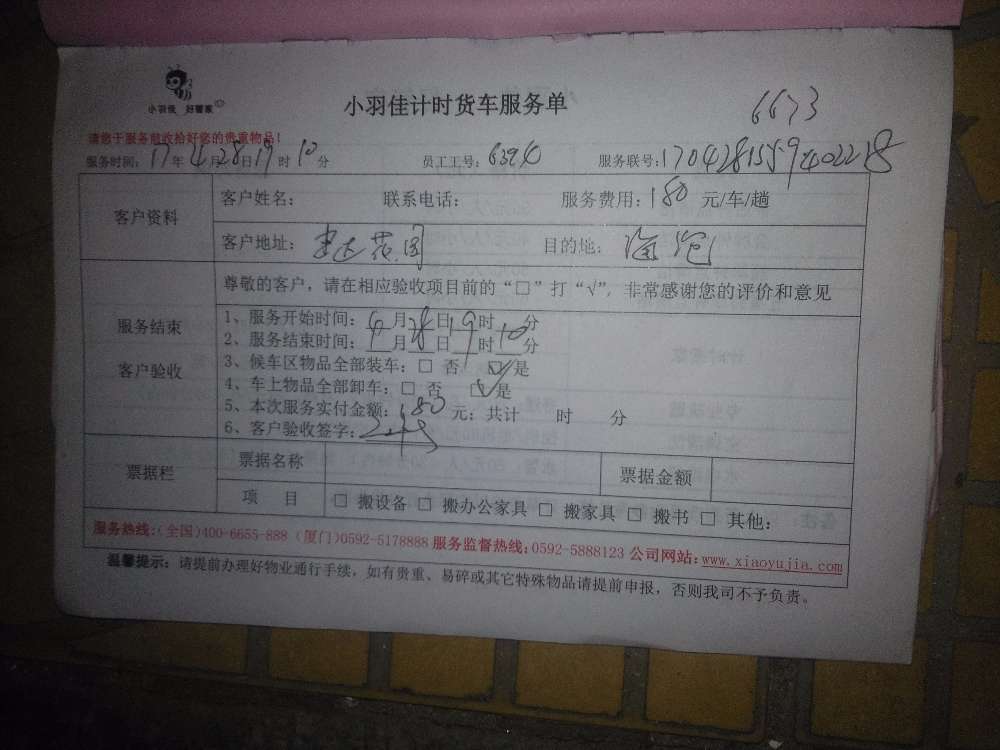 小羽佳 好管家
小羽佳计时货车服务单
6673
请您于服务前收拾好您的贵重物品!
服务时间:17年4月28日19时10分 员工工号: 服务联号:
客户资料
客户姓名: 联系电话: 服务费用:180元/车/趟
客户地址:建达花园 目的地:
服务结束
客户验收
尊敬的客户,请在相应验收项目前的“□”打“√”,非常感谢您的评价和意见
1、服务开始时间:4月28日19时10分
2、服务结束时间: 月 日 时 分
3、候车区物品全部装车:□ 否 ☑是
4、车上物品全部卸车:□ 否 ☑是
5、本次服务实付金额:180元;共计 时 分
6、客户验收签字:
票据栏
票据名称 票据金额
项 目 □ 搬设备 □ 搬办公家具 □ 搬家具 □ 搬书 □ 其他:
服务热线:(全国)400-6655-888 (厦门)0592-5178888 服务监督热线:0592-5888123 公司网站:www.xiaoyujia.com
温馨提示:请提前办理好物业通行手续,如有贵重、易碎或其它特殊物品请提前申报,否则我司不予负责。